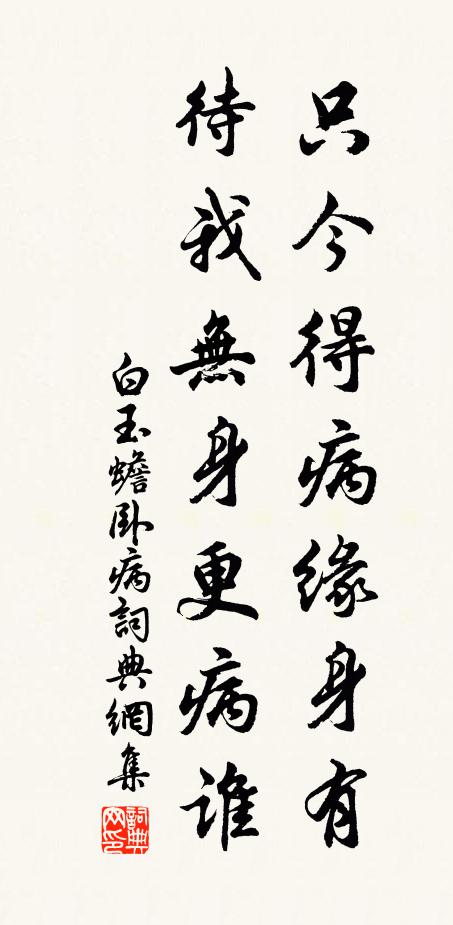 只今得病緣身有
待我無身更病誰
白玉蟾臥病詞典網集
詞典网印